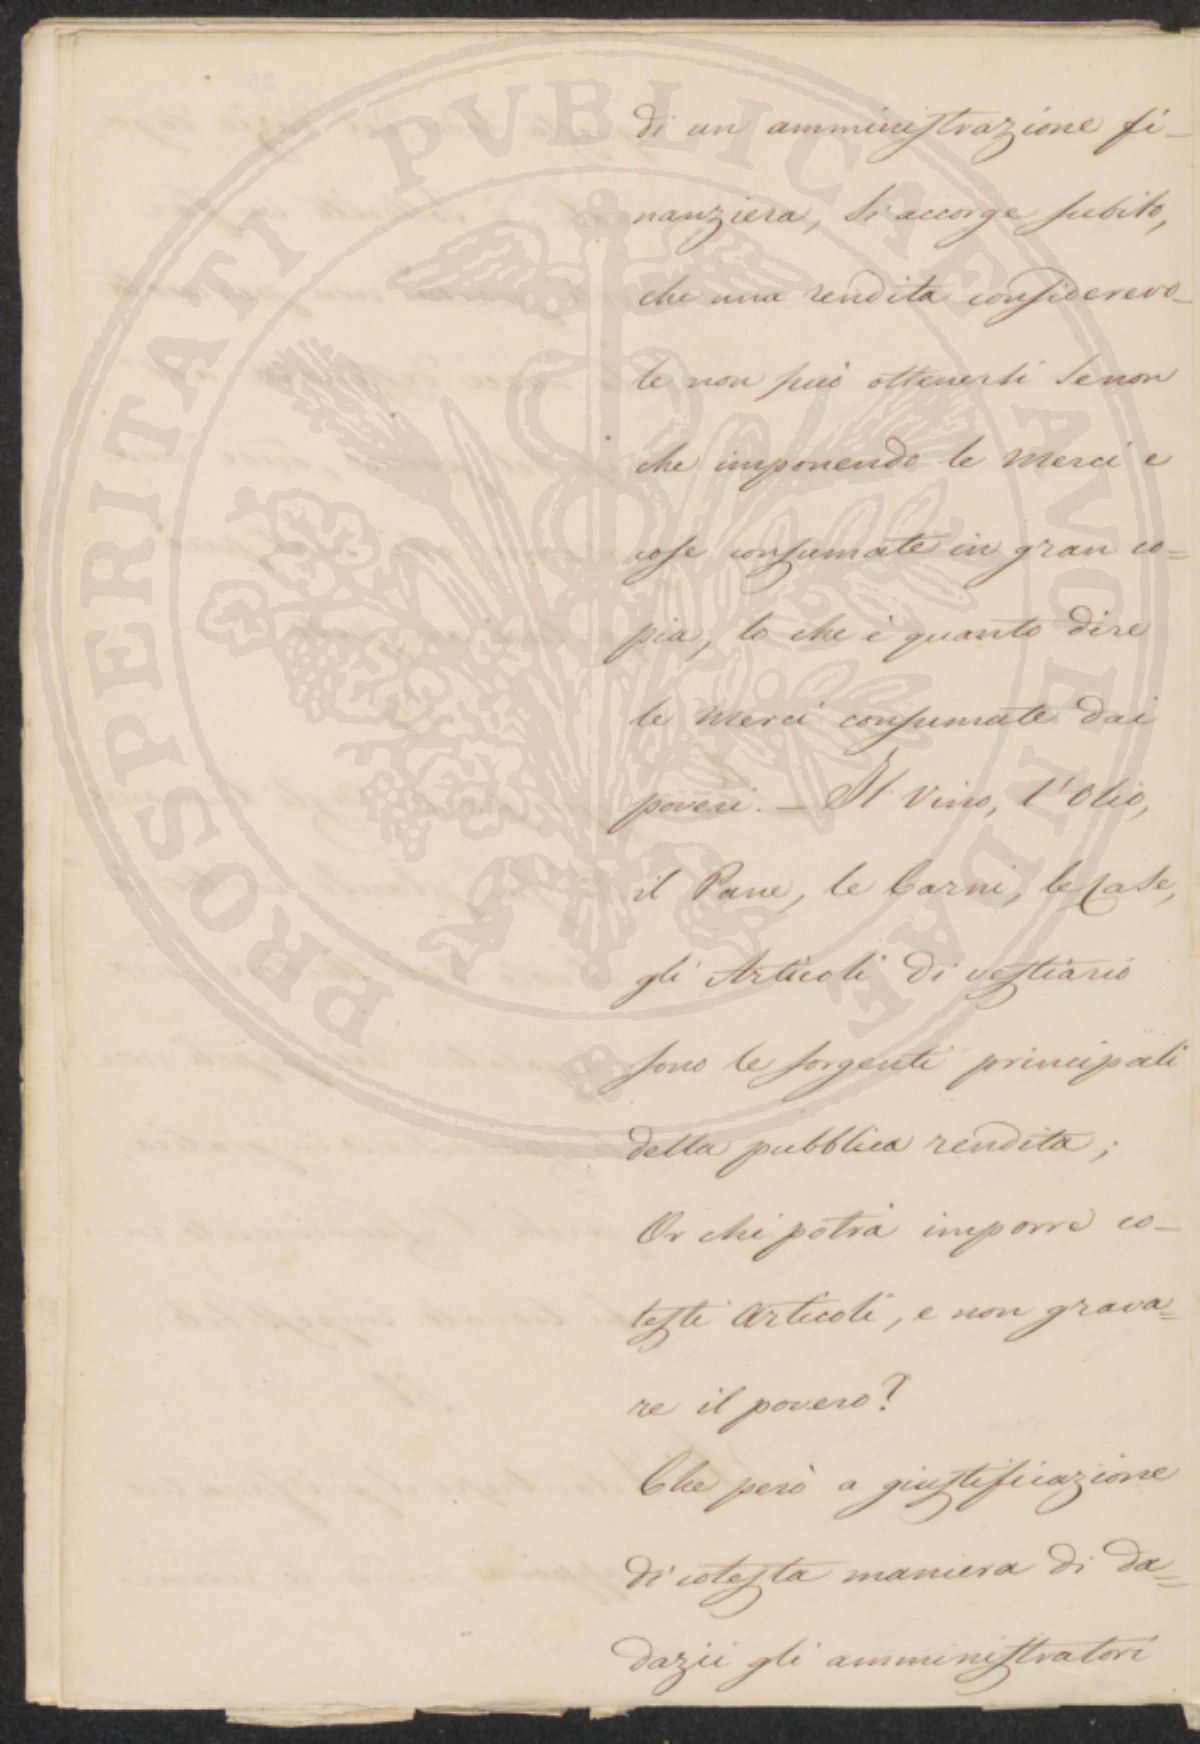 di un amministrazione fi-
nanziera, si accorge subito,
che una rendita considerevo-
le non può ottenersi senon
che imponendo le merci e
cose consumate in gran co=
pia, lo che è quanto dire
le merci consumate dai
poveri. — Il Vino, l'Olio,
il Pane, le Carni, le Case,
gli Articoli di vestiario
sono le sorgenti principali
della pubblica rendita;
Or chi potrà imporre co-
testi articoli, e non grava=
re il povero?
Che però a giustificazione
di cotesta maniera di da=
dazii gli amministratori
PROSPERITATI PVBLICAE AVGENDAE